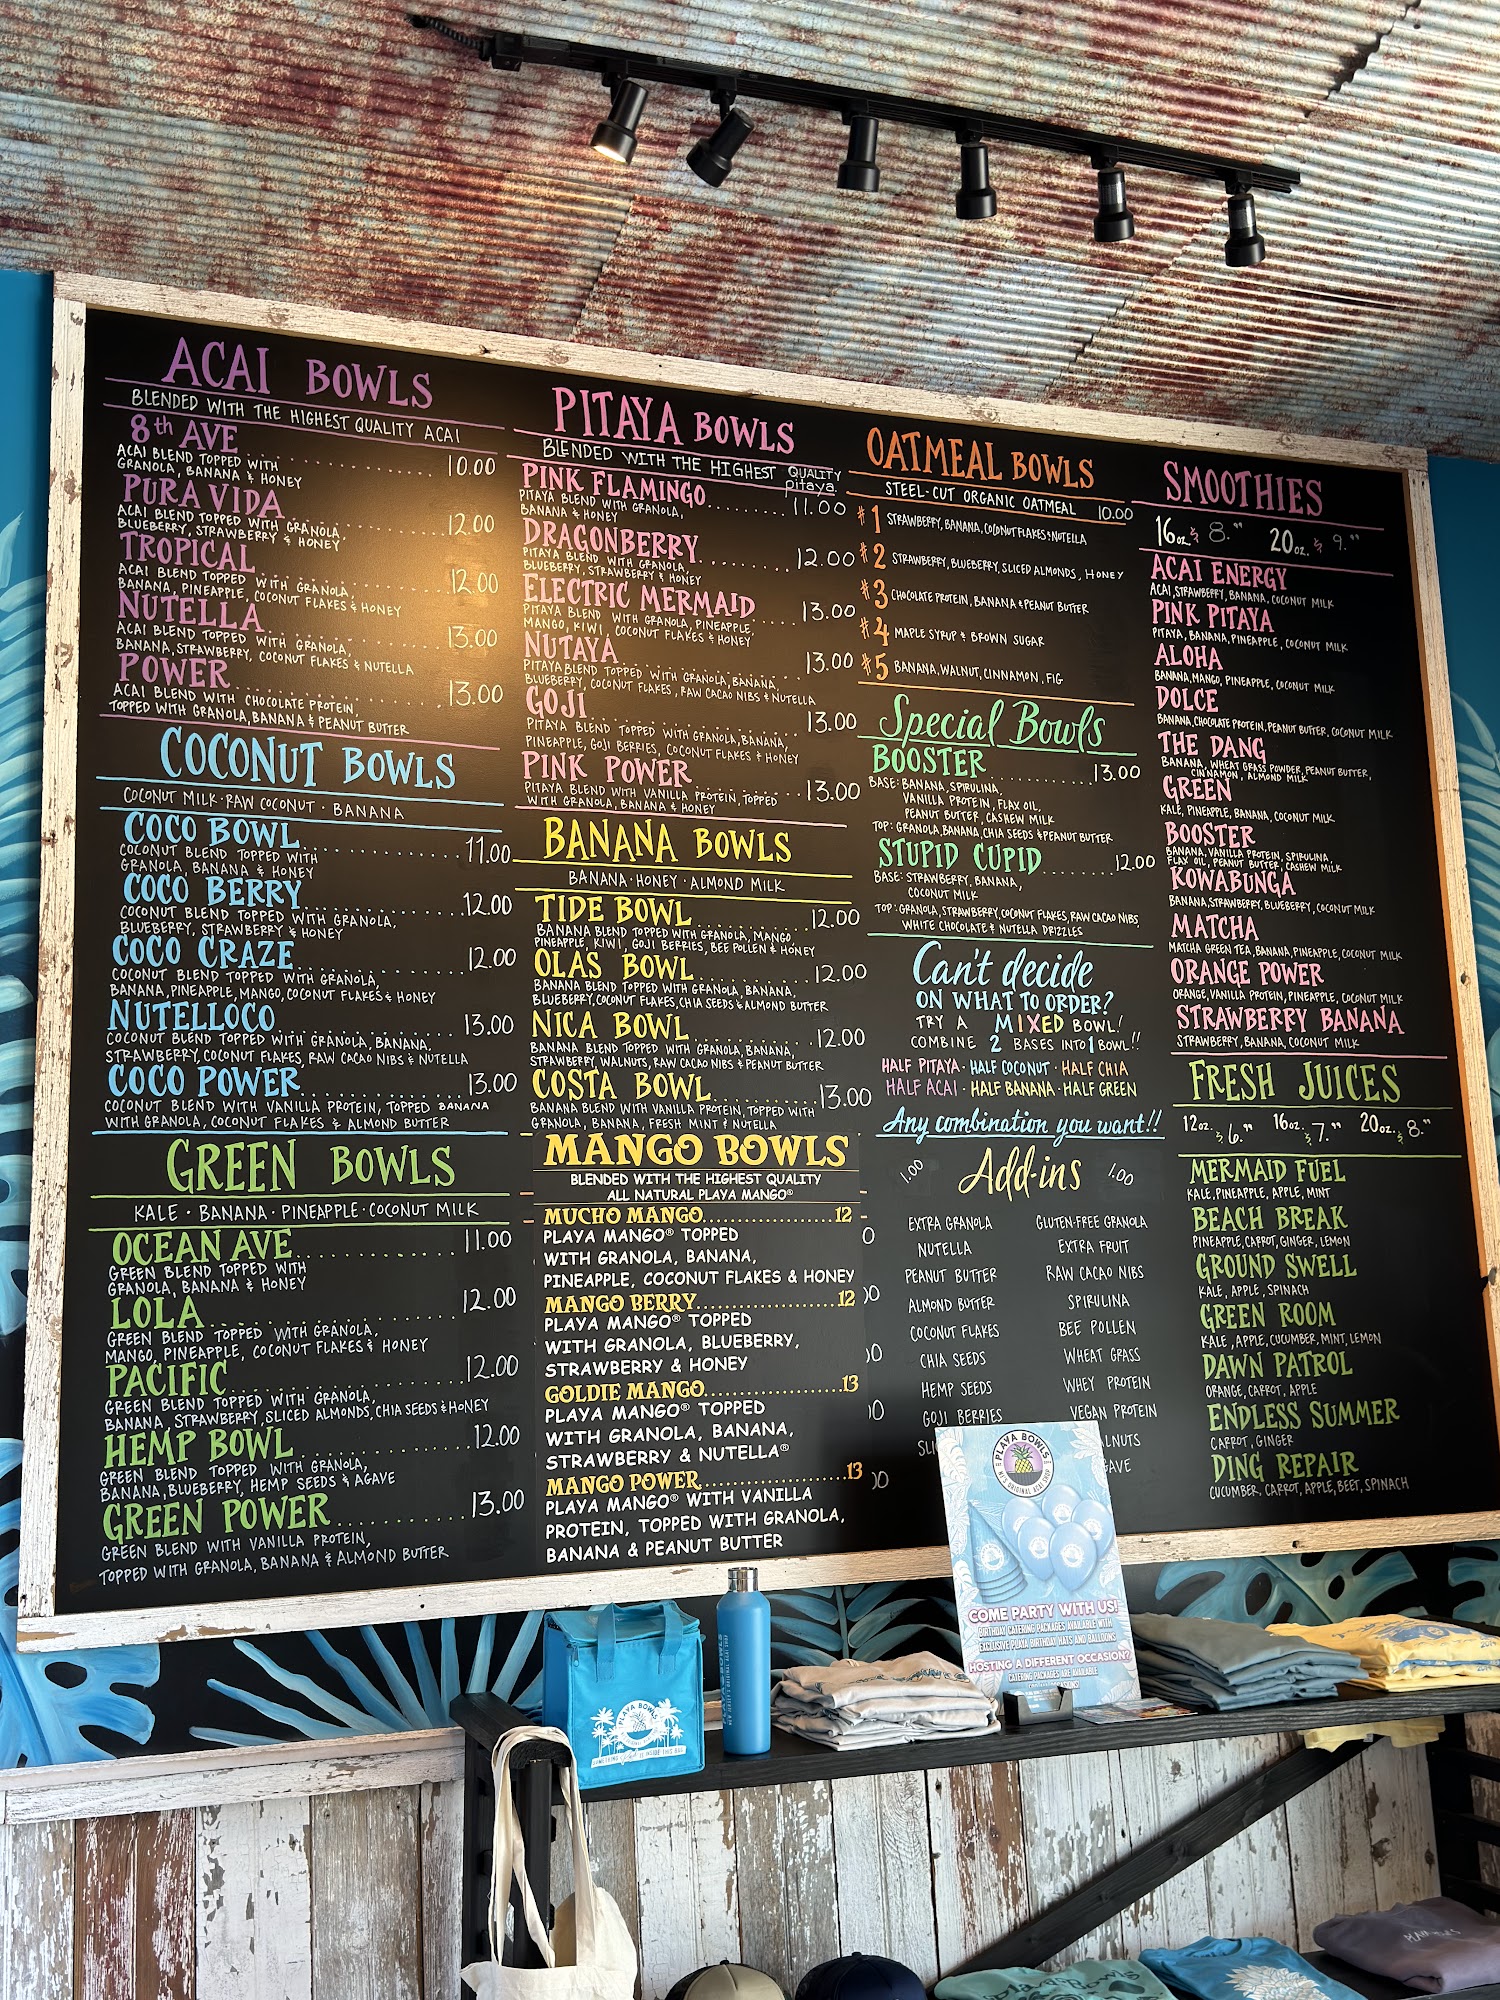 ACAI BOWLS
BLENDED WITH THE HIGHEST QUALITY ACAI
8th AVE 10.00
ACAI BLEND TOPPED WITH
GRANOLA, BANANA & HONEY
PURA VIDA 12.00
ACAI BLEND TOPPED WITH GRANOLA,
BLUEBERRY, STRAWBERRY & HONEY
TROPICAL 12.00
ACAI BLEND TOPPED WITH GRANOLA,
BANANA, PINEAPPLE, COCONUT FLAKES & HONEY
NUTELLA 13.00
ACAI BLEND TOPPED WITH GRANOLA,
BANANA, STRAWBERRY, COCONUT FLAKES & NUTELLA
POWER 13.00
ACAI BLEND WITH CHOCOLATE PROTEIN,
TOPPED WITH GRANOLA, BANANA & PEANUT BUTTER
COCONUT BOWLS
COCONUT MILK · RAW COCONUT · BANANA
COCO BOWL 11.00
COCONUT BLEND TOPPED WITH
GRANOLA, BANANA & HONEY
COCO BERRY 12.00
COCONUT BLEND TOPPED WITH GRANOLA,
BLUEBERRY, STRAWBERRY & HONEY
COCO CRAZE 12.00
COCONUT BLEND TOPPED WITH GRANOLA,
BANANA, PINEAPPLE, MANGO, COCONUT FLAKES & HONEY
NUTELLOCO 13.00
COCONUT BLEND TOPPED WITH GRANOLA, BANANA,
STRAWBERRY, COCONUT FLAKES, RAW CACAO NIBS & NUTELLA
COCO POWER 13.00
COCONUT BLEND WITH VANILLA PROTEIN, TOPPED BANANA
WITH GRANOLA, COCONUT FLAKES & ALMOND BUTTER
GREEN BOWLS
KALE · BANANA · PINEAPPLE · COCONUT MILK
OCEAN AVE 11.00
GREEN BLEND TOPPED WITH
GRANOLA, BANANA & HONEY
LOLA 12.00
GREEN BLEND TOPPED WITH GRANOLA,
MANGO, PINEAPPLE, COCONUT FLAKES & HONEY
PACIFIC 12.00
GREEN BLEND TOPPED WITH GRANOLA,
BANANA, STRAWBERRY, SLICED ALMONDS, CHIA SEEDS & HONEY
HEMP BOWL 12.00
GREEN BLEND TOPPED WITH GRANOLA,
BANANA, BLUEBERRY, HEMP SEEDS & AGAVE
GREEN POWER 13.00
GREEN BLEND WITH VANILLA PROTEIN,
TOPPED WITH GRANOLA, BANANA & ALMOND BUTTER
PITAYA BOWLS
BLENDED WITH THE HIGHEST QUALITY pitaya
PINK FLAMINGO 11.00
PITAYA BLEND WITH GRANOLA,
BANANA & HONEY
DRAGONBERRY 12.00
PITAYA BLEND WITH GRANOLA,
BLUEBERRY, STRAWBERRY & HONEY
ELECTRIC MERMAID 13.00
PITAYA BLEND WITH GRANOLA, PINEAPPLE,
MANGO, KIWI, COCONUT FLAKES & HONEY
NUTAYA 13.00
PITAYA BLEND TOPPED WITH GRANOLA, BANANA,
BLUEBERRY, COCONUT FLAKES, RAW CACAO NIBS & NUTELLA
GOJI 13.00
PITAYA BLEND TOPPED WITH GRANOLA, BANANA,
PINEAPPLE, GOJI BERRIES, COCONUT FLAKES & HONEY
PINK POWER 13.00
PITAYA BLEND WITH VANILLA PROTEIN, TOPPED
WITH GRANOLA, BANANA & HONEY
BANANA BOWLS
BANANA · HONEY · ALMOND MILK
TIDE BOWL 12.00
BANANA BLEND TOPPED WITH GRANOLA, MANGO,
PINEAPPLE, KIWI, GOJI BERRIES, BEE POLLEN & HONEY
OLAS BOWL 12.00
BANANA BLEND TOPPED WITH GRANOLA, BANANA,
BLUEBERRY, COCONUT FLAKES, CHIA SEEDS & ALMOND BUTTER
NICA BOWL 12.00
BANANA BLEND TOPPED WITH GRANOLA, BANANA,
STRAWBERRY, WALNUTS, RAW CACAO NIBS & PEANUT BUTTER
COSTA BOWL 13.00
BANANA BLEND WITH VANILLA PROTEIN, TOPPED WITH
GRANOLA, BANANA, FRESH MINT & NUTELLA
MANGO BOWLS
BLENDED WITH THE HIGHEST QUALITY
ALL NATURAL PLAYA MANGO®
MUCHO MANGO 12
PLAYA MANGO® TOPPED
WITH GRANOLA, BANANA,
PINEAPPLE, COCONUT FLAKES & HONEY
MANGO BERRY 12
PLAYA MANGO® TOPPED
WITH GRANOLA, BLUEBERRY,
STRAWBERRY & HONEY
GOLDIE MANGO 13
PLAYA MANGO® TOPPED
WITH GRANOLA, BANANA,
STRAWBERRY & NUTELLA®
MANGO POWER 13
PLAYA MANGO® WITH VANILLA
PROTEIN, TOPPED WITH GRANOLA,
BANANA & PEANUT BUTTER
OATMEAL BOWLS
STEEL-CUT ORGANIC OATMEAL 10.00
#1 STRAWBERRY, BANANA, COCONUT FLAKES & NUTELLA
#2 STRAWBERRY, BLUEBERRY, SLICED ALMONDS, HONEY
#3 CHOCOLATE PROTEIN, BANANA & PEANUT BUTTER
#4 MAPLE SYRUP & BROWN SUGAR
#5 BANANA, WALNUT, CINNAMON, FIG
Special Bowls
BOOSTER 13.00
BASE: BANANA, SPIRULINA,
VANILLA PROTEIN, FLAX OIL,
PEANUT BUTTER, CASHEW MILK
TOP: GRANOLA, BANANA, CHIA SEEDS & PEANUT BUTTER
STUPID CUPID 12.00
BASE: STRAWBERRY, BANANA,
COCONUT MILK
TOP: GRANOLA, STRAWBERRY, COCONUT FLAKES, RAW CACAO NIBS,
WHITE CHOCOLATE & NUTELLA DRIZZLES
Can't decide
ON WHAT TO ORDER?
TRY A MIXED BOWL!
COMBINE 2 BASES INTO 1 BOWL!!
HALF PITAYA · HALF COCONUT · HALF CHIA
HALF ACAI · HALF BANANA · HALF GREEN
Any combination you want!!
1.00 Add-ins 1.00
EXTRA GRANOLA
NUTELLA
PEANUT BUTTER
ALMOND BUTTER
COCONUT FLAKES
CHIA SEEDS
HEMP SEEDS
GOJI BERRIES
GLUTEN-FREE GRANOLA
EXTRA FRUIT
RAW CACAO NIBS
SPIRULINA
BEE POLLEN
WHEAT GRASS
WHEY PROTEIN
VEGAN PROTEIN
SMOOTHIES
16oz. $ 8.00 20oz. $ 9.00
ACAI ENERGY
ACAI, STRAWBERRY, BANANA, COCONUT MILK
PINK PITAYA
PITAYA, BANANA, PINEAPPLE, COCONUT MILK
ALOHA
BANANA, MANGO, PINEAPPLE, COCONUT MILK
DOLCE
BANANA, CHOCOLATE PROTEIN, PEANUT BUTTER, COCONUT MILK
THE DANG
BANANA, WHEAT GRASS POWDER, PEANUT BUTTER,
CINNAMON, ALMOND MILK
GREEN
KALE, PINEAPPLE, BANANA, COCONUT MILK
BOOSTER
BANANA, VANILLA PROTEIN, SPIRULINA,
FLAX OIL, PEANUT BUTTER, CASHEW MILK
KOWABUNGA
BANANA, STRAWBERRY, BLUEBERRY, COCONUT MILK
MATCHA
MATCHA GREEN TEA, BANANA, PINEAPPLE, COCONUT MILK
ORANGE POWER
ORANGE, VANILLA PROTEIN, PINEAPPLE, COCONUT MILK
STRAWBERRY BANANA
STRAWBERRY, BANANA, COCONUT MILK
FRESH JUICES
12oz. $6.00 16oz. $7.00 20oz. $8.00
MERMAID FUEL
KALE, PINEAPPLE, APPLE, MINT
BEACH BREAK
PINEAPPLE, CARROT, GINGER, LEMON
GROUND SWELL
KALE, APPLE, SPINACH
GREEN ROOM
KALE, APPLE, CUCUMBER, MINT, LEMON
DAWN PATROL
ORANGE, CARROT, APPLE
ENDLESS SUMMER
CARROT, GINGER
DING REPAIR
CUCUMBER, CARROT, APPLE, BEET, SPINACH
PLAYA BOWLS
NJ'S ORIGINAL ACAI SHOP
COME PARTY WITH US!
BIRTHDAY CATERING PACKAGES AVAILABLE WITH
EXCLUSIVE PLAYA BIRTHDAY HATS AND BALLOONS
HOSTING A DIFFERENT OCCASION?
CATERING PACKAGES ARE AVAILABLE
PLAYA BOWLS